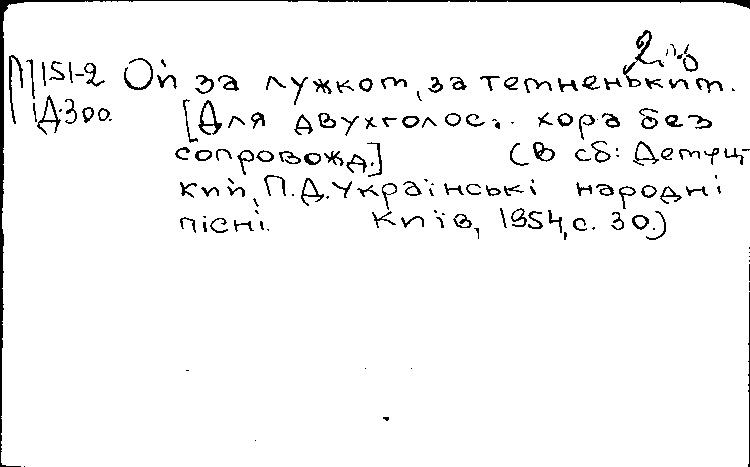 М151-2 Ой за лужком, за темненьким.
Д.300. [Для двухголос. хора без
сопровожд.] (В сб: Демуц-
кий, П.Д. Українські народні
пісні. Київ, 1954, с. 30.)